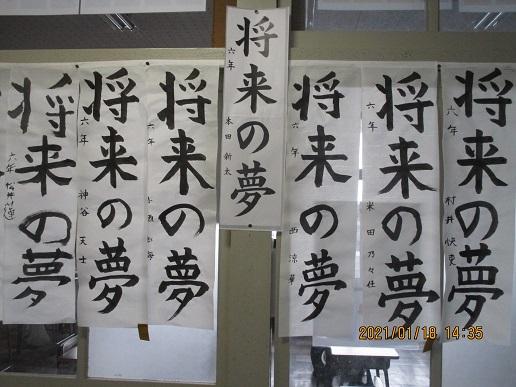 将来の夢
六年
村井快吏
将来の夢
六年
米田乃々佳
将来の夢
六年
将来の夢
六年
本田新太
将来の夢
六年
将来の夢
六年
神谷天士
将来の夢
六年
2021/01/18 14:35